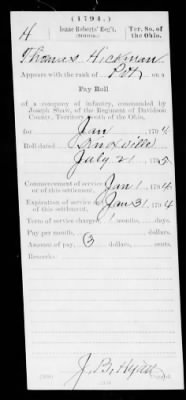 (1794.)
H Isaac Roberts' Reg't. Ter. So. of the Ohio.
Thomas Hickman
Appears with the rank of Pvt on a
Pay Roll
of a company of infantry, commanded by
Joseph Shaw, of the Regiment of Davidson
County, Territory South of the Ohio,
for Jan 1794
Roll dated Knoxville
July 21 1795
Commencement of service or of this settlement, Jan 1, 1794
Expiration of service or of this settlement, Jan 31, 1794
Term of service charged, months, days.
Pay per month, dollars, cents.
Amount of pay, 3 dollars, cents.
Remarks:
J. B. Hyatt